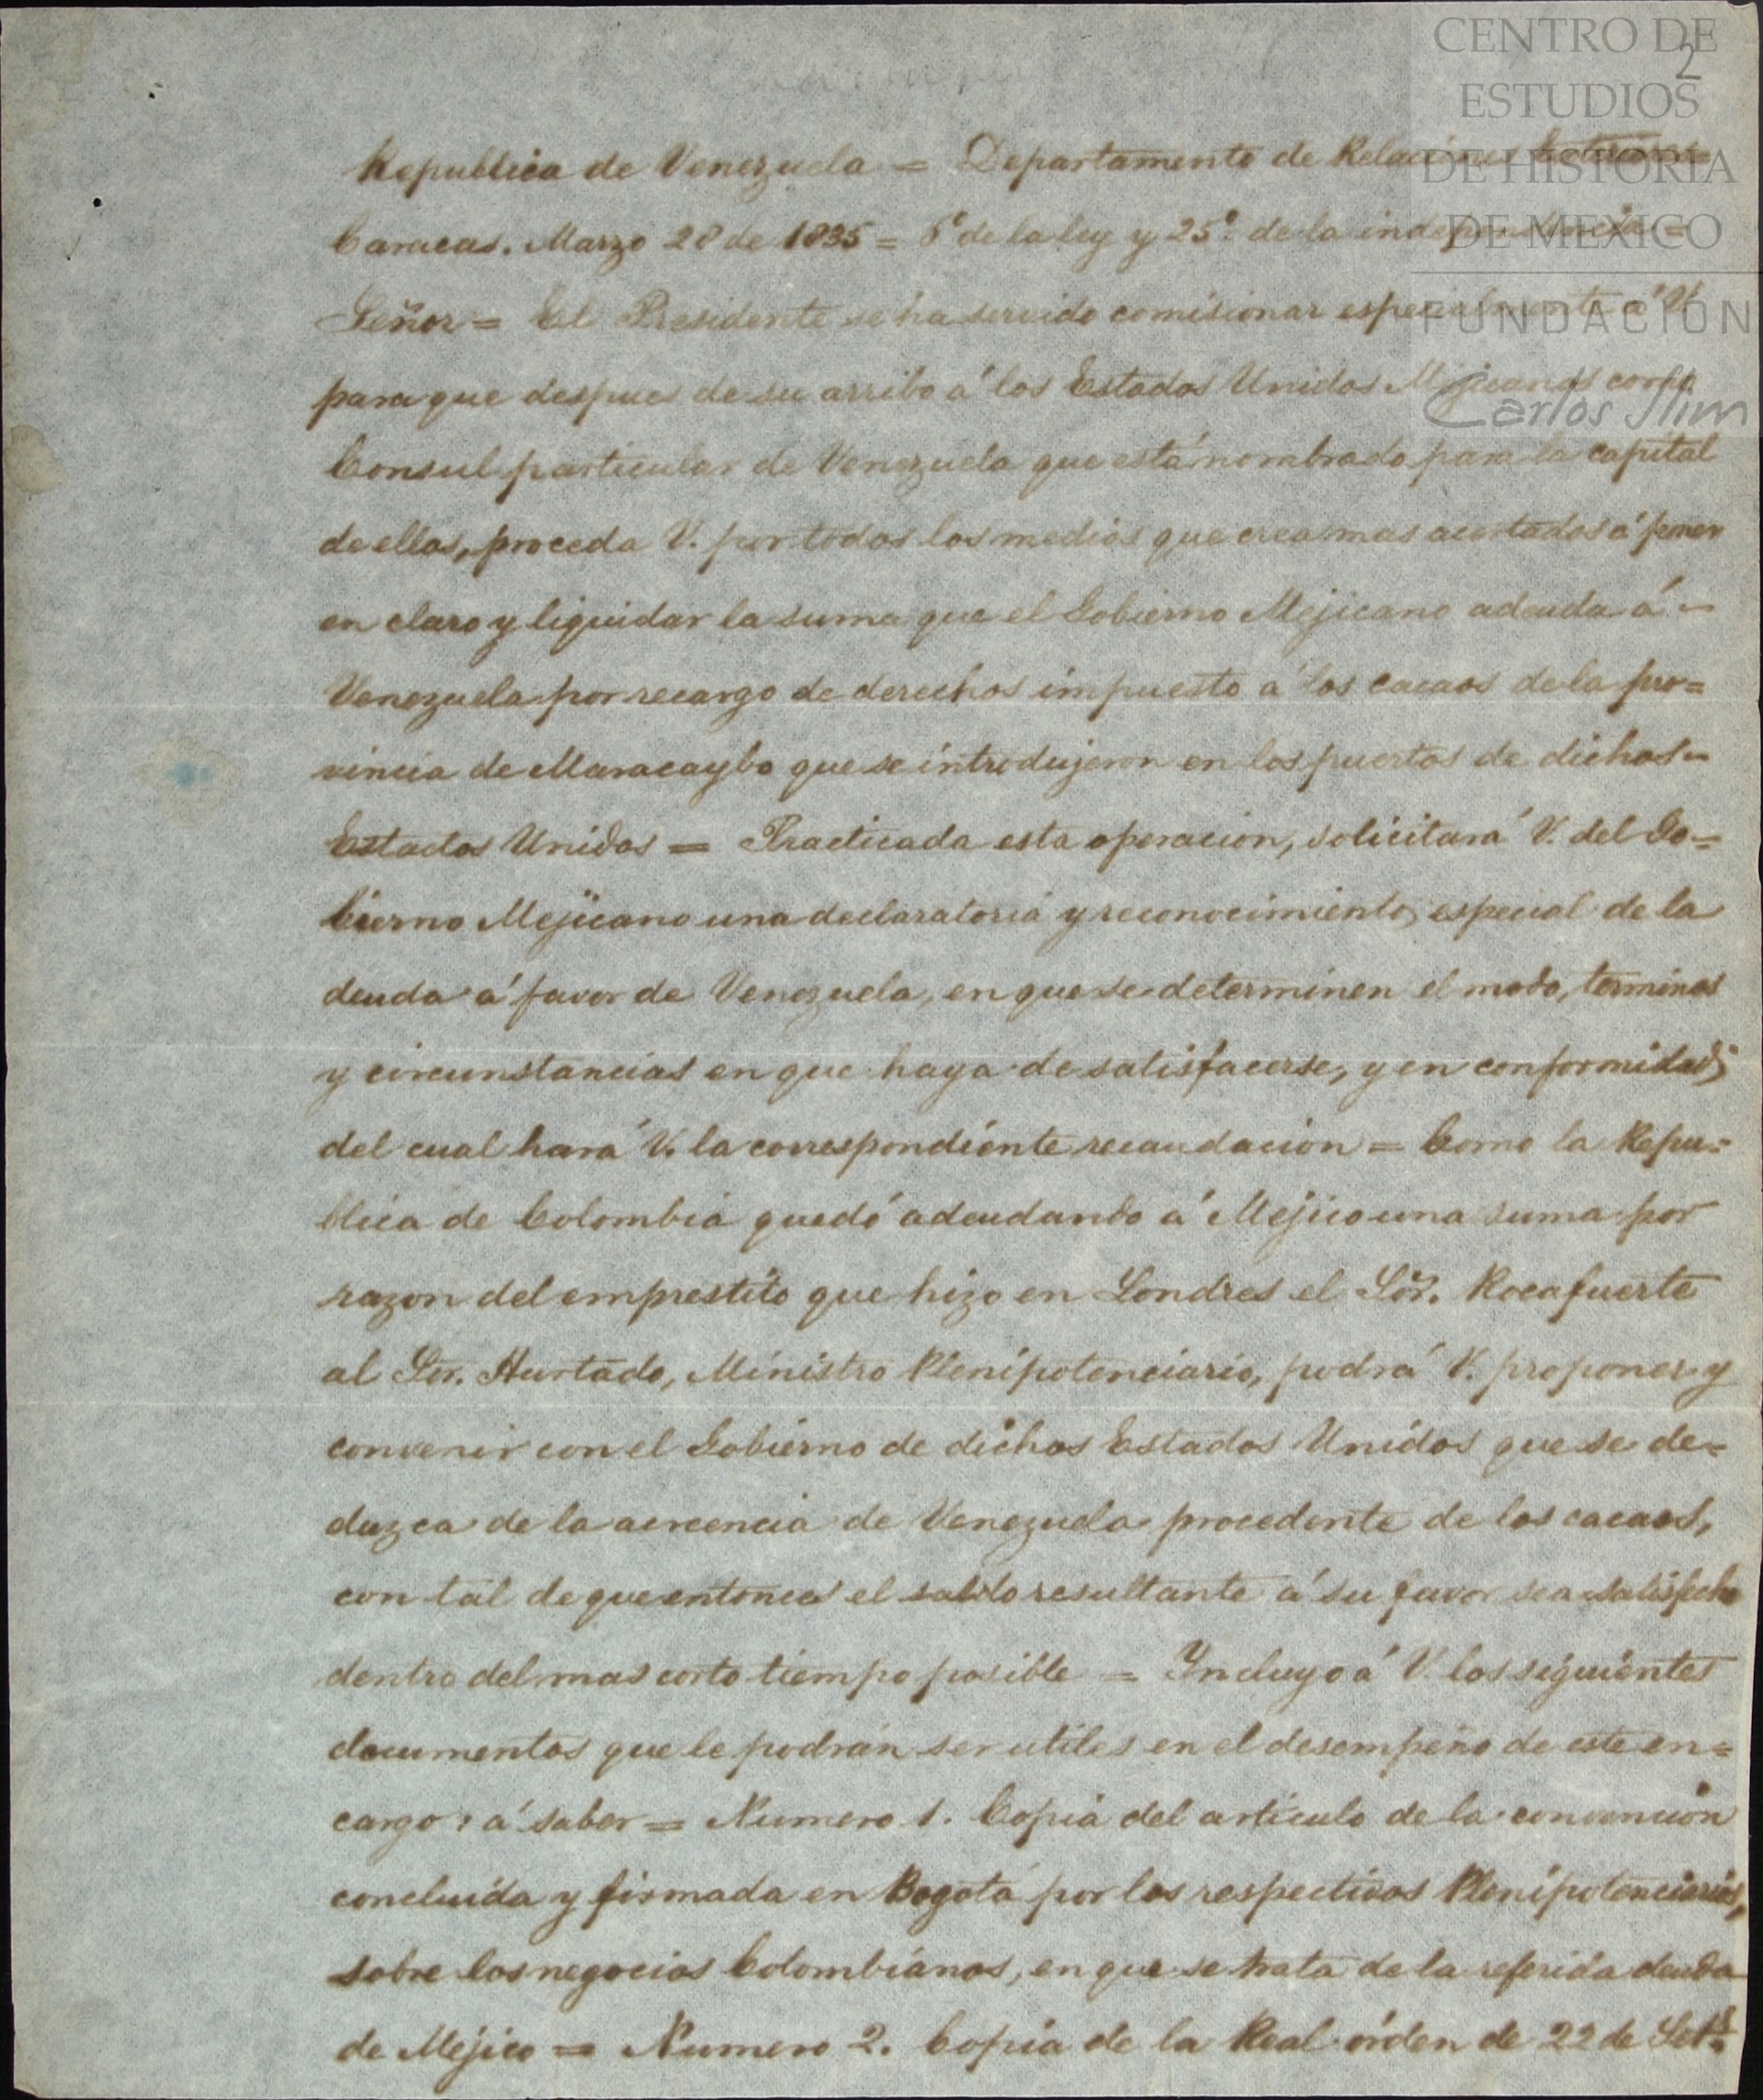 CENTRO DE
ESTUDIOS
DE HISTORIA
DE MEXICO
FUNDACION
Carlos Slim
2
Republica de Venezuela = Departamento de Relaciones Exteriores=
Caracas. Marzo 28 de 1835 = 6º de la ley y 25º. de la independencia =
Señor = El Presidente se ha servido comisionar especialmente á V.
para que despues de su arribo á los Estados Unidos Mejicanos como
Consul particular de Venezuela que está nombrado para la capital
de ellos, proceda V. por todos los medios que crea mas acertados á poner
en claro y liquidar la suma que el Gobierno Mejicano adeuda á -
Venezuela por recargo de derechos impuesto á los cacaos de la pro=
vincia de Maracaybo que se introdujeron en los puertos de dichos -
Estados Unidos = Practicada esta operacion, solicitará V. del Go=
bierno Mejicano una declaratoria y reconocimiento especial de la
deuda á favor de Venezuela, en que se determinen el modo, terminos
y circunstancias en que haya de satisfacerse, y en conformidad
del cual hará V. la correspondiente recaudacion = Como la Repu=
blica de Colombia quedó adeudando á Mejico una suma por
razon del emprestito que hizo en Londres el Sõr. Rocafuerte
al Sõr. Hurtado, Ministro Plenipotenciario, podrá V. proponer y
convenir con el Gobierno de dichos Estados Unidos que se de=
duzca de la acreencia de Venezuela procedente de los cacaos,
con tal de que entonces el saldo resultante á su favor sea satisfecho
dentro del mas corto tiempo posible = Incluyo á V. los siguientes
documentos que le podrán ser utiles en el desempeño de este en=
cargo: á saber = Numero 1. Copia del articulo de la convencion
concluida y firmada en Bogotá por los respectivos Plenipotenciarios,
sobre los negocios Colombianos, en que se trata de la referida deuda
de Méjico = Numero 2. Copia de la Real órden de 22 de Set.e